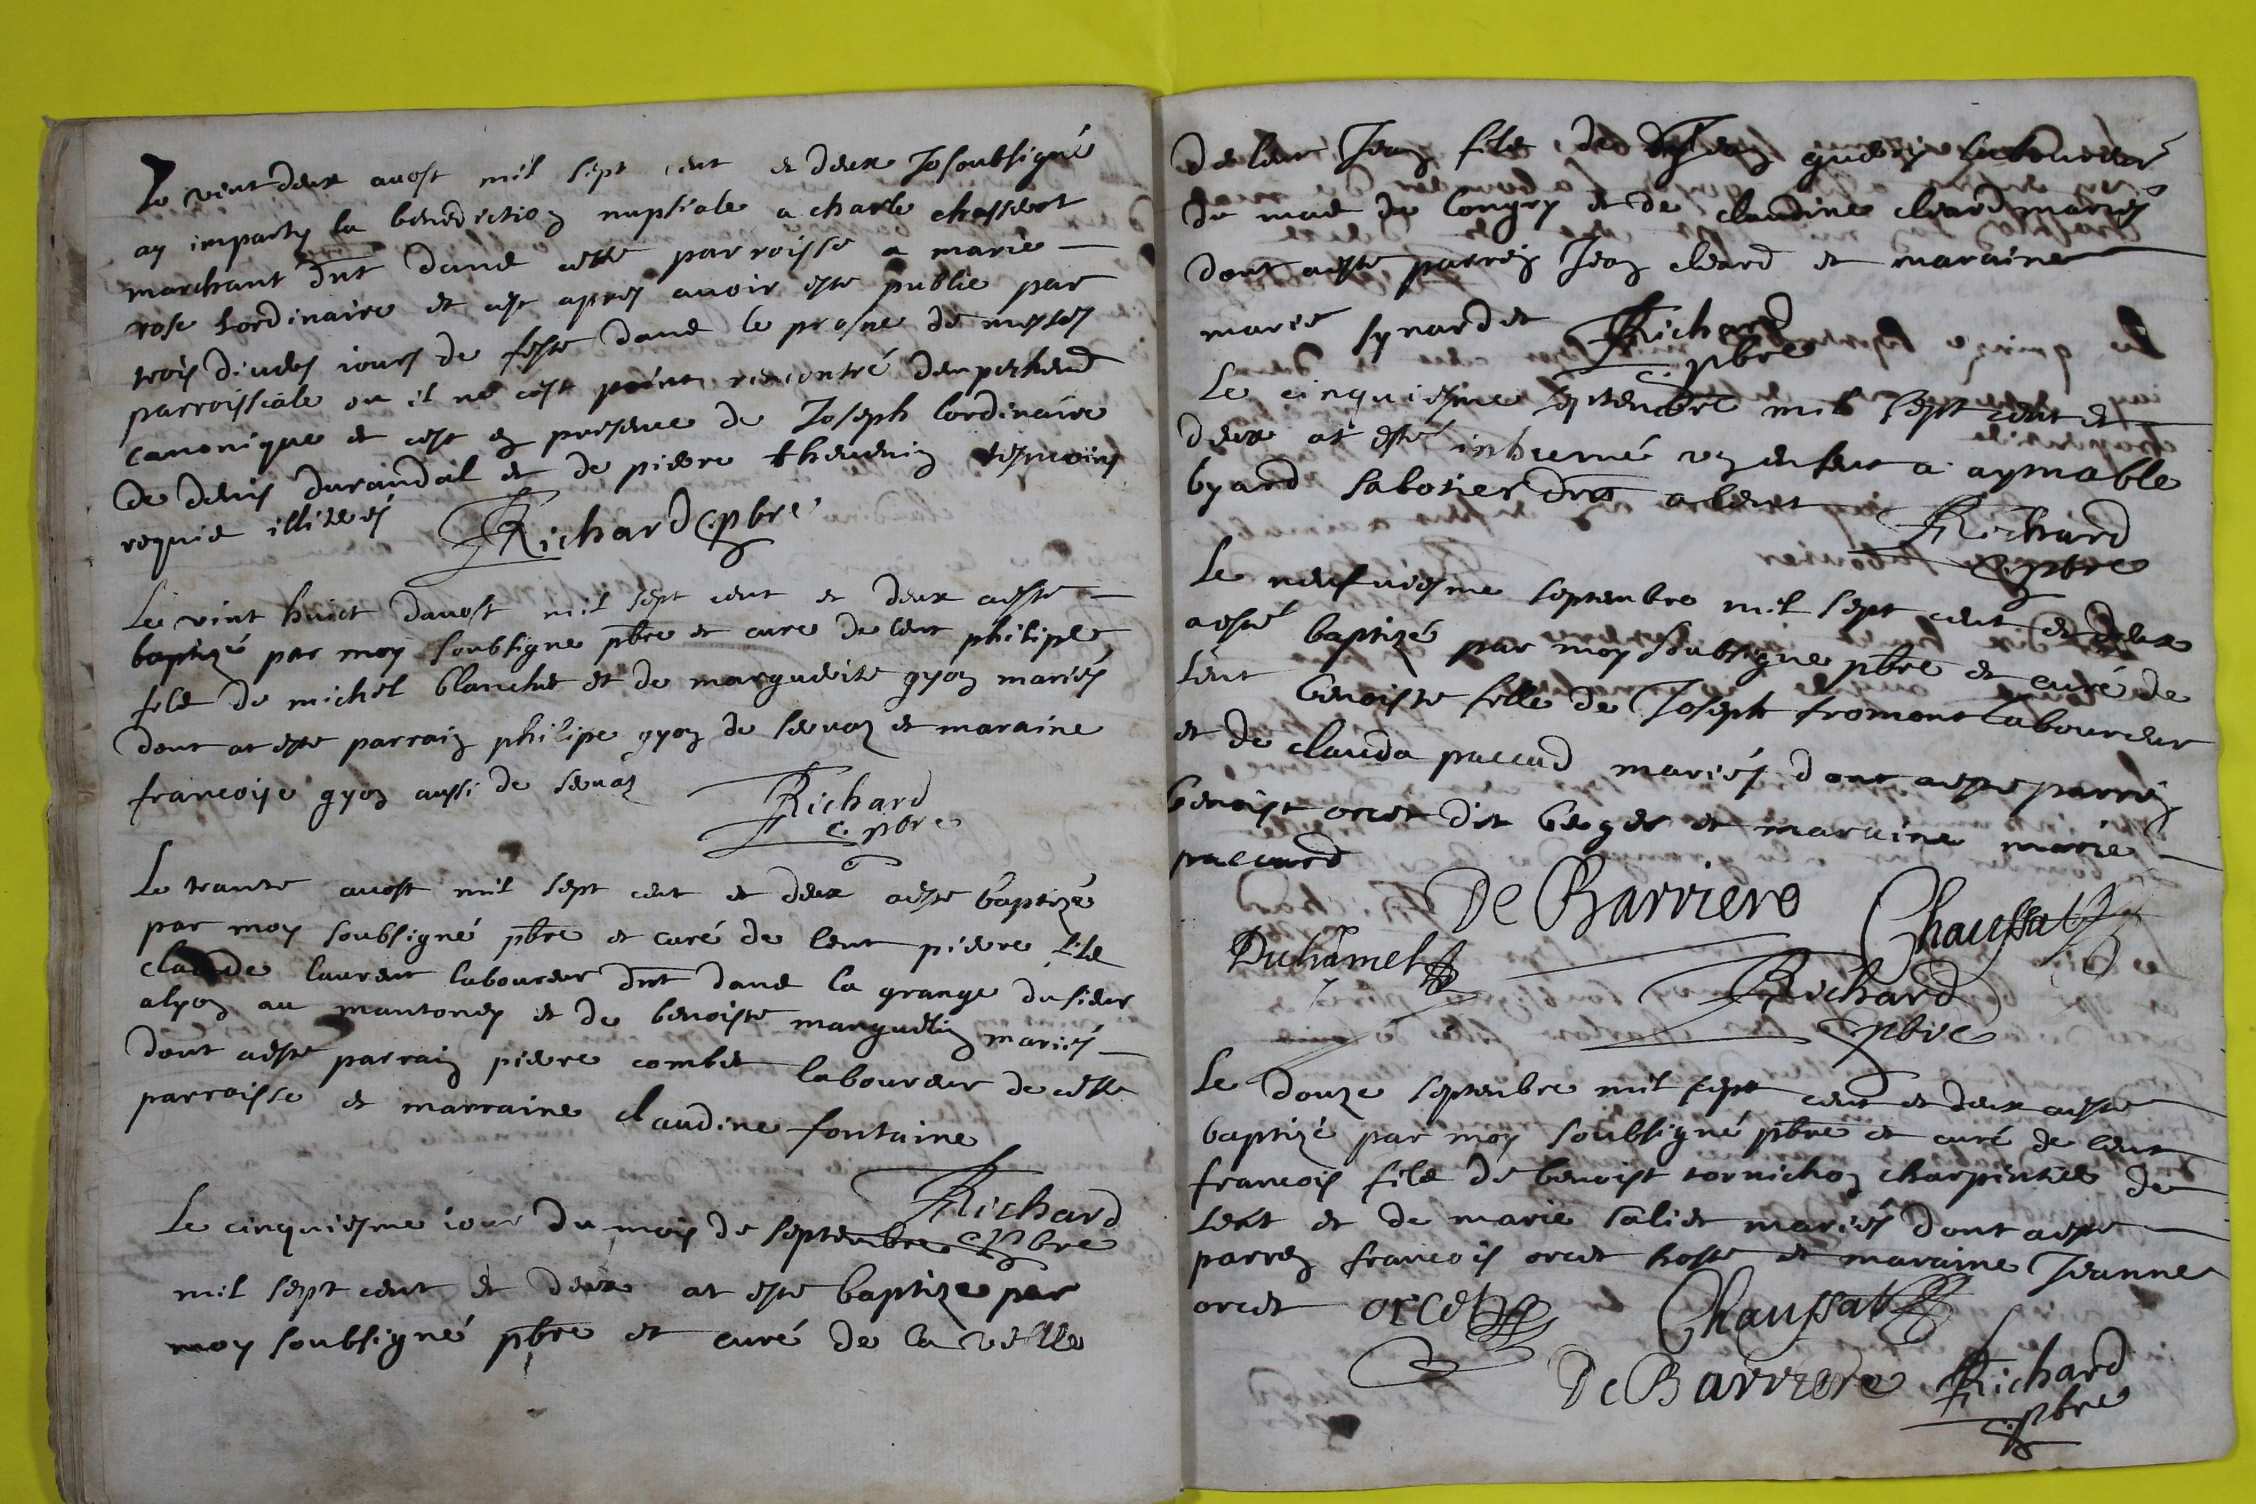 Le vint deux aoust mil sept cent et deux Je soubsigné
ay imparty la benediction nuptiale a charle chassent
marchant dnt dans cette parroisse a marie
rose lordinaire et cest apres avoir este publie par
trois divers iours de feste dans le prosne de messes
parroissiale ou il ne cest point rencontré dempechemt
canonique et cest en presence de Joseph lordinaire
de denis durandal et de pierre thevenin tesmoins
requis illiteres Richard c. pbre
Le vint huict daoust mil sept cent et deux a esté
baptizé par moy soubsigne pbre et cure de lent philipe
fils de michel blanchet et de marguerite gyon mariés
dont at este parrain philipe gyon de servaz et maraine
francoise gyon aussi de servaz
Richard
c. pbre
Le trante aoust mil sept cent et deux a este baptizé
par moy soubsigné pbre et curé de lent pierre fils
claude laurent laboureur dnt dans la grange du sieur
alyon au mantoney et de benoiste manguelin mariés
dont a este parrain pierre combet laboureur de cette
parroisse et marraine claudine fontaine
Richard
c. pbre
Le cinquiesme iour du mois de septembre
mil sept cent et deux at este baptize par
moy soubsigné pbre et curé de la ville
de lent Jean fils de Jean laboureur
du mas de longry et de claudine cleard mariés
dont a este parrein Jean cleard et maraine
marie synardet Richard
c. pbre
Le cinquiesme septembre mil sept cent et
deux at esté inhumé un enfant a aymable
byard sabotier dnt a lent
Richard
c. pbre
Le neufviesme septembre mil sept cent et deux
a esté baptizé par moy soubsigne pbre et curé de
lent benoiste fille de Joseph fromont laboureur
et de clauda paccard mariés dont a este parrein
benoist orcet dit berger et maraine marie
paccard
De Barriere
Chaussat
Duhamel
Richard
c. pbre
Le douze septembre mil sept cent et deux a este
baptizé par moy soubsigné pbre et curé de lent
francois fils de benoist tornichon charpintier de
lent et de marie saliet mariés dont a este
parrein francois orcet hoste et maraine Jeanne
orcet orcet Chaussat
De Barriere Richard
c. pbre